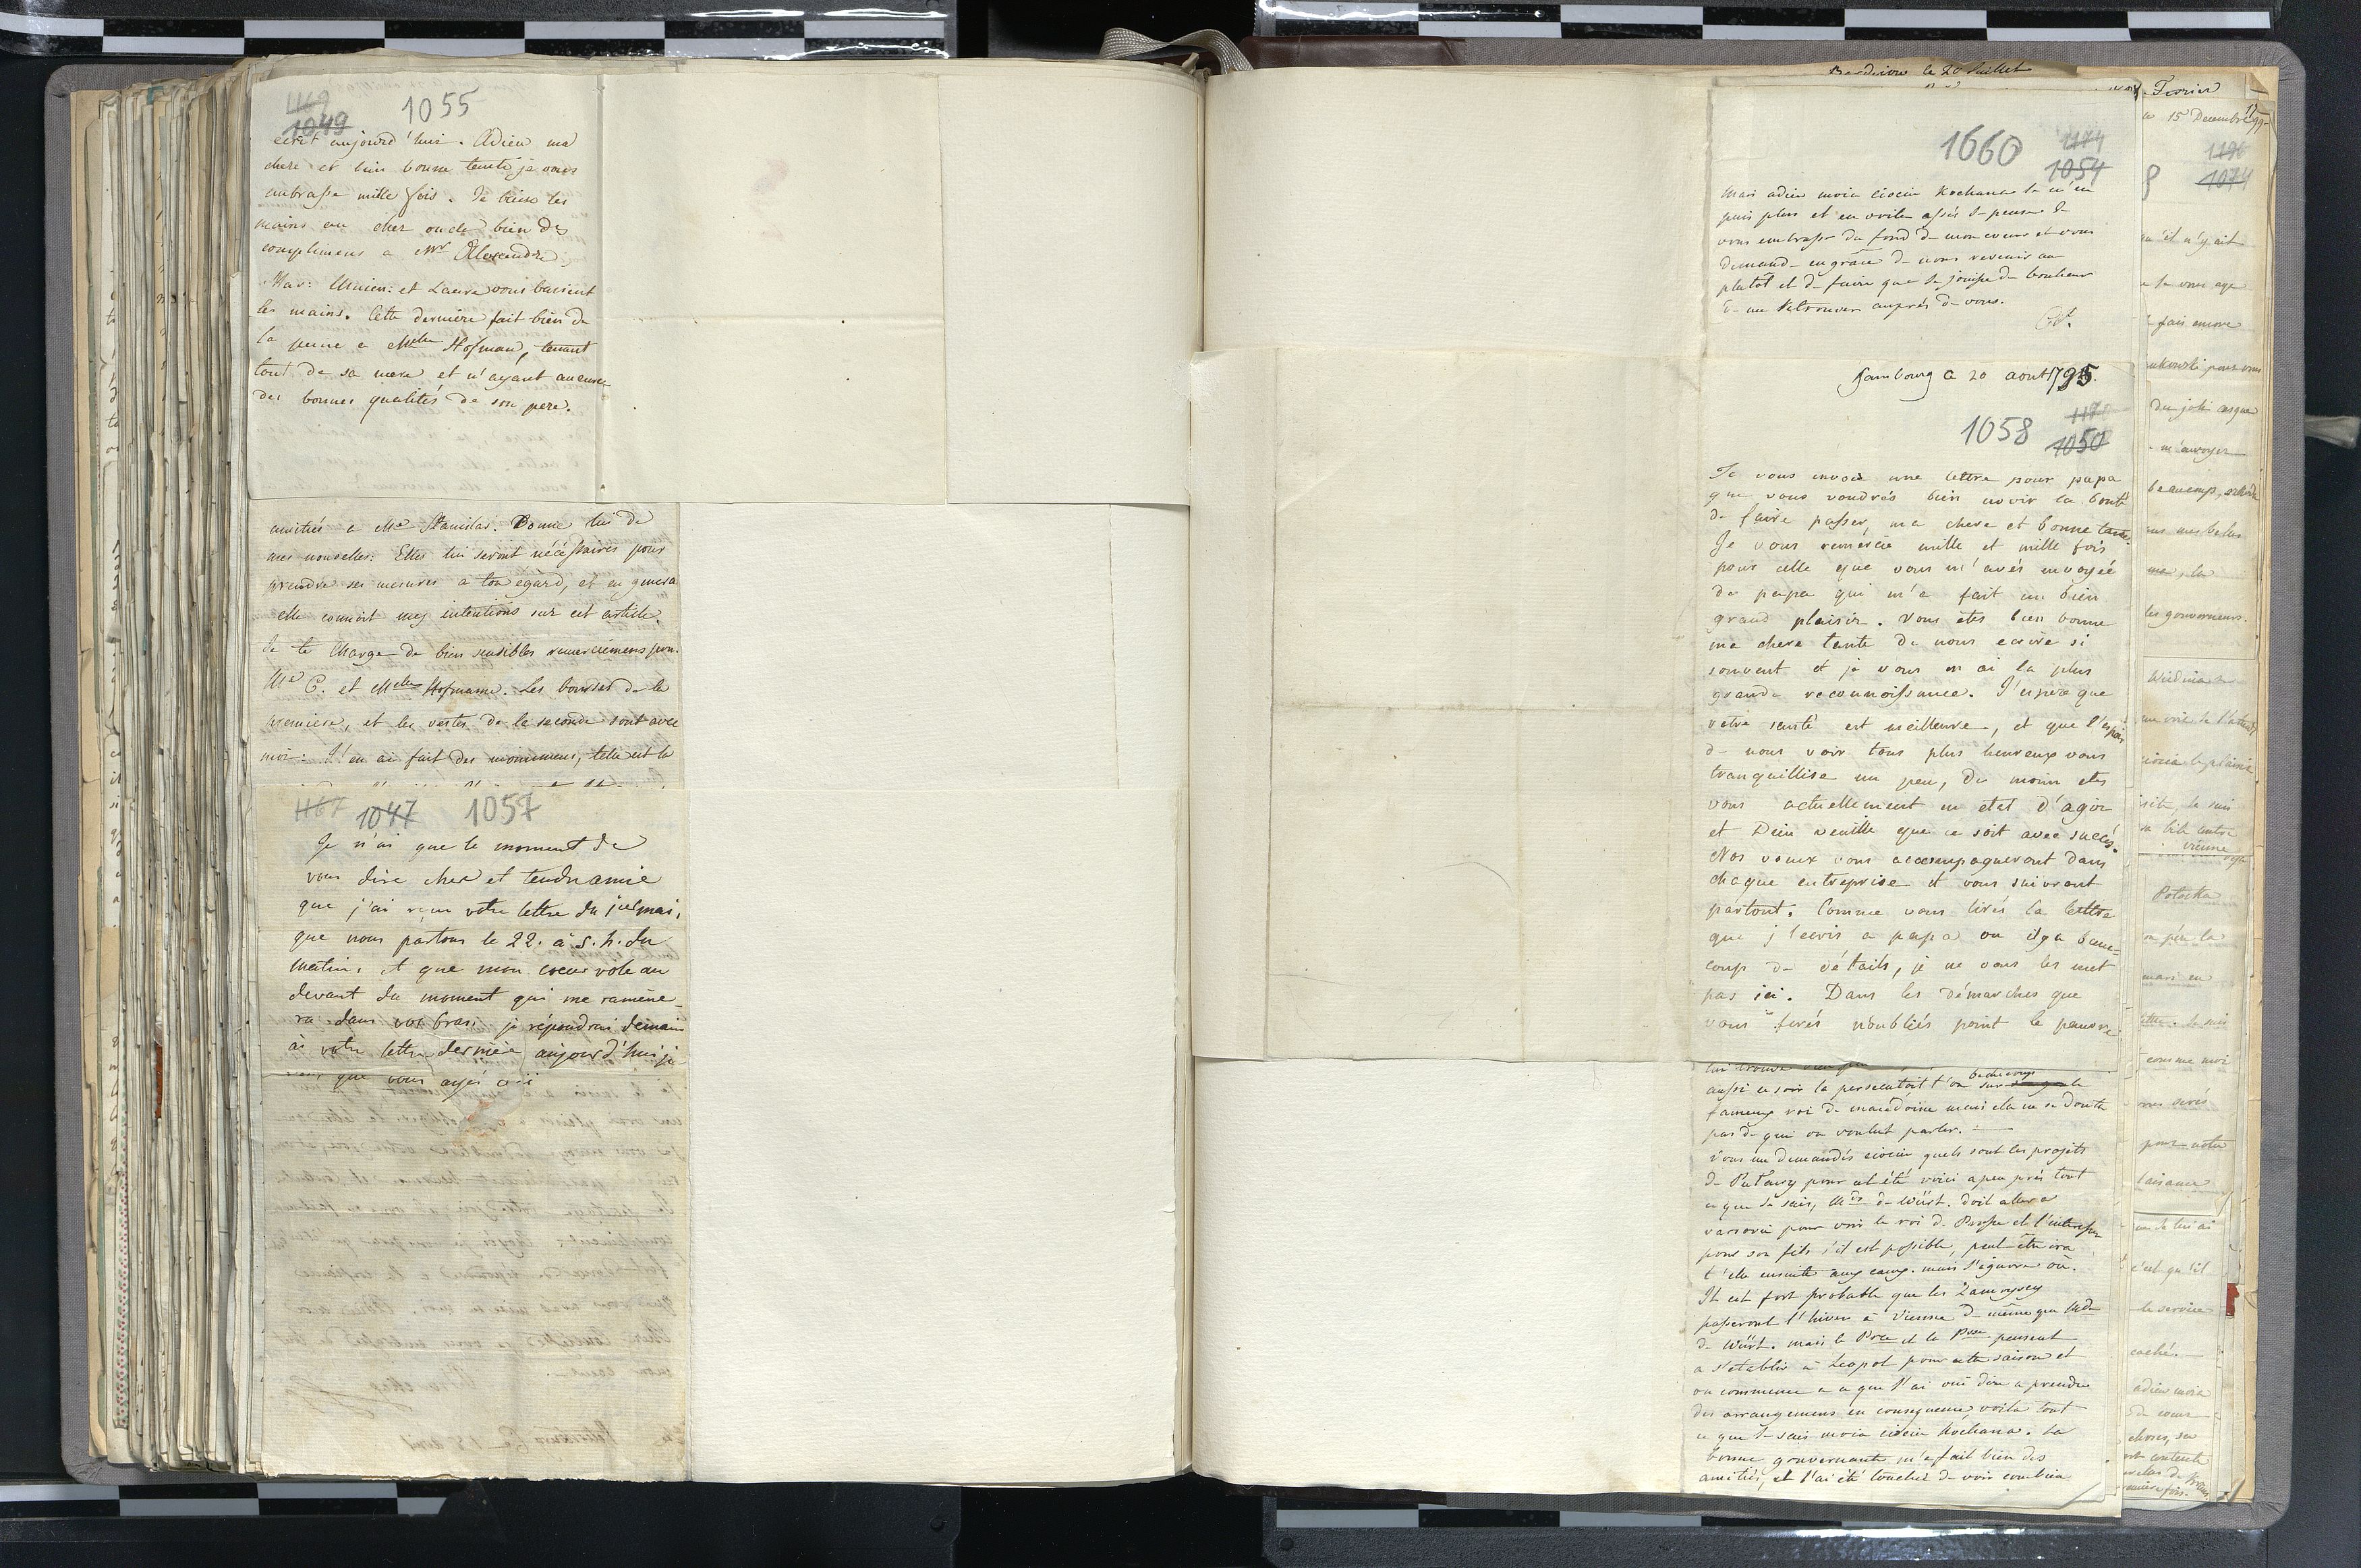 1169
1049 1055
ecrit aujourd'hui. Adieu ma
chere et bien bonne tante je vous
embrasse mille fois. Je baise les
mains au cher oncle bien des
complimens a Mr Alexandre,
et Laure vous baisent
les mains. Cette derniere fait bien de
la peine a Melle Hofman, tenant
tout de sa mere et n'ayant aucune
des bonnes qualités de son pere.
amitiés a Me Stanislas. Donne lui de
mes nouvelles: Elles lui seront nécéssaires pour
prendre ses mesures a ton egard, et en general
elle connoit mes intentions sur cet article.
Je te charge de bien sensibles remerciemens pour
Me C. et Melle Hofmann. Les bourses de la
premiere, et les vestes de la seconde sont avec
moi: J'en ai fait des monumens, telle est la
1167 1047 1057
Je n'ai que le moment de
vous dire chere et tendre amie
que j'ai reçu votre lettre du mai,
que nous partons le 22. à 5. h. du
matin, et que mon coeur vole au
devant du moment qui me ramène-
ra dans vos bras. je répondrai demain
à votre lettre derniere aujourd'hui je
veux que vous ayés ceci
Berdiow le 20 Juillet
1660 1174
1054
Mais adieu moia ciociu Kochana Je n'en
puis plus et en voila assés Je pense de
vous embrasser du fond de mon coeur et vous
demande en grâce de nous revenir au
plutôt et de faire que Je jouisse de bonheur
de me retrouver auprés de vous.
Hambourg a 20 aout 1795.
1058 1050
Je vous envoie une lettre pour papa
que vous voudrés bien avoir la bonté
de faire passer, ma chere et bonne tante.
Je vous remércie mille et mille fois
pour celle que vous m'avés envoyée
de papa qui m'a fait un bien
grand plaisir. Vous etes bien bonne
ma chere tante de nous ecrire si
souvent et je vous en ai la plus
grande reconnoissance. J'espere que
votre santé est meilleure, et que l'espoir
de nous voir tous plus heureux vous
tranquillise un peu, du moins etes
vous actuellement en etat d'agir
et Dieu veuille que ce soit avec succés.
Nos voeux vous accompagneront dans
chaque entreprise et vous suivront
partout. Comme vous lirés la lettre
que j'ecris a papa ou il y a beau-
coup de détails, je ne vous les met
pas ici. Dans les démarches que
vous ferés n'oubliés point le pauvre
aussi ce soir la persecutoit t'on beaucoup sur le
fameux roi de macédoine mais elle ne se doute
pas de qui on voulut parler.
Vous me demandés ciociu quels sont les projets
de Putawy pour cet été voici a peu prés tout
ce que Je sais, Mde de Würt. doit aller a
varsovie pour voir le roi de Prusse et l'interesser
pour son fils s'il est possible, peut-être ira
t'elle ensuite aux eaux. mais J'ignore où.
Il est fort probable que les Zamoyscy
passeront l'hiver à Vienne de même que Mde
de Würt. mais le Pce et la Psse pensent
a s'etablir à Leopol pour cette saison et
on commence a ce que J'ai oui dire a prendre
des arrangemens en consequence, voila tout
ce que Je sais moia ciociu Kochana. La
bonne gouvernante m'a fait bien des
amitiés, et J'ai été touchée de voir combien
Fevrier
15 Decembre
1196
1074
qu'il n'y ait
fais encore
du joli casque
m'envoyer
beaucoup,
mes belles
les gouverneurs.
Potocka
mari en
comme moi
vous serés
pour notre
c'est qu'il
le service
caché.
adieu moia
de coeur
choses, su